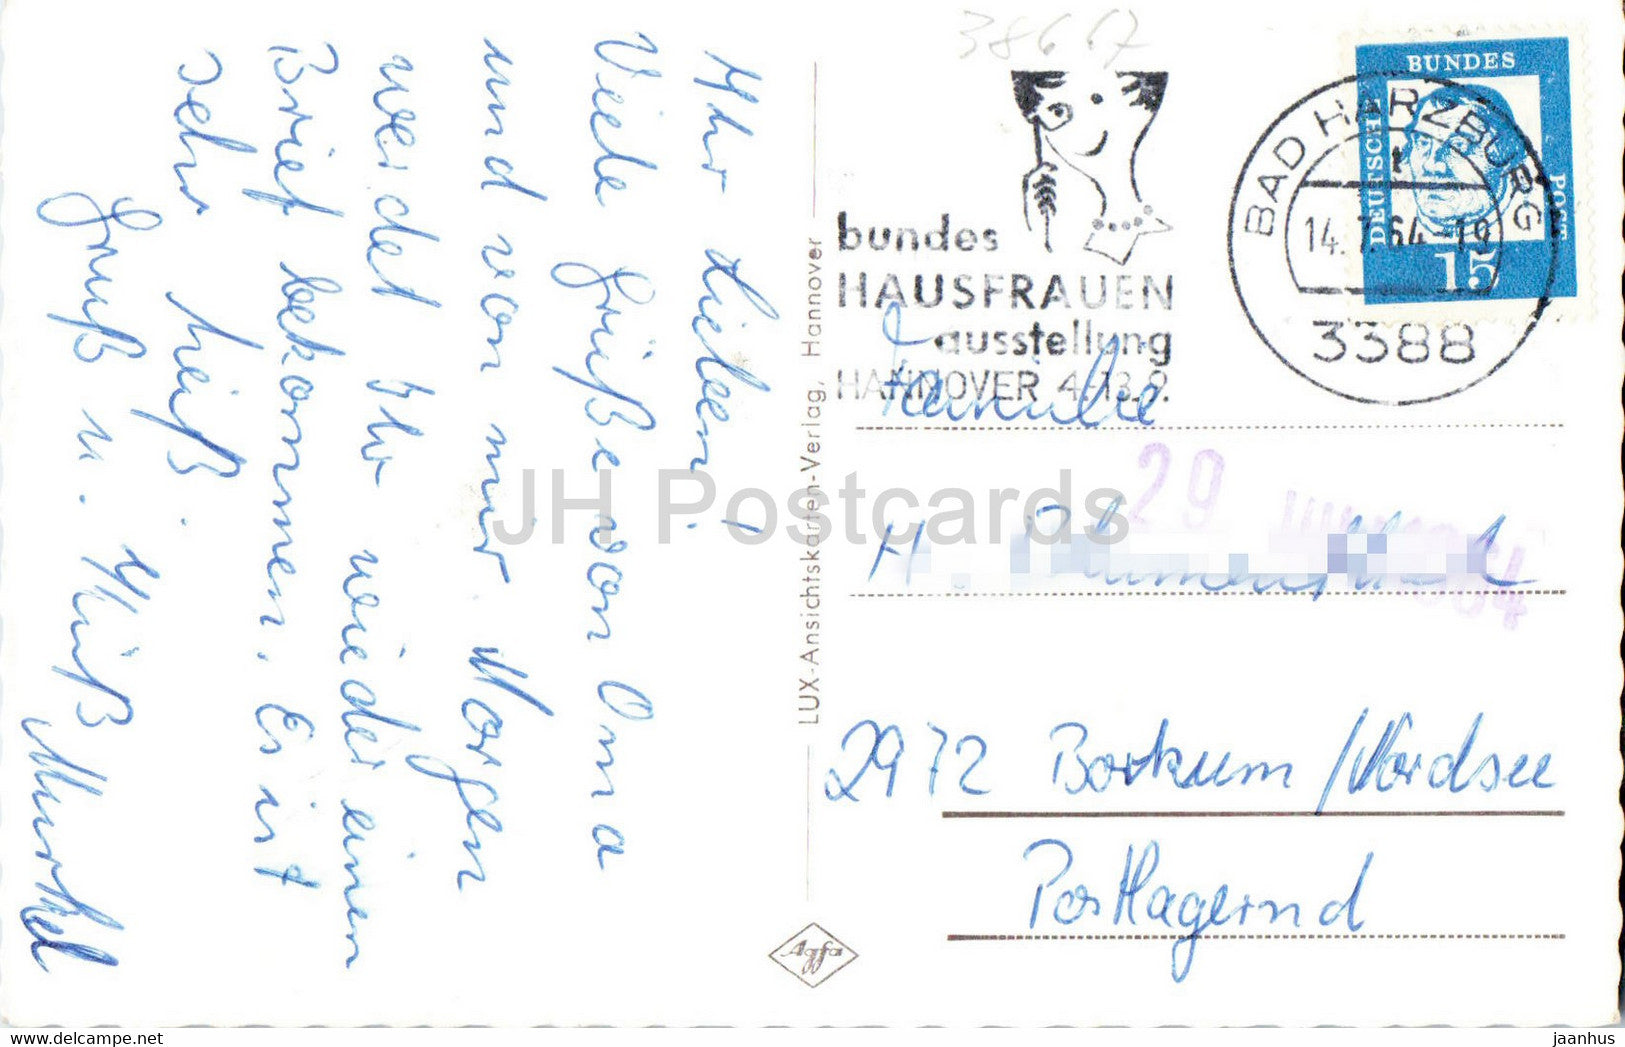 Ihr Lieben!
Viele Grüße von Oma
und von mir. Morgen
werdet Ihr wieder einen
Brief bekommen. Es ist
sehr heiß.
Gruß u. Küß
Murkel
LUX-Ansichtskarten-Verlag, Hannover
Agfa
38667
bundes
HAUSFRAUEN
ausstellung
HANNOVER 4.-13.9.
BAD HARZBURG
t
14.7.64-19
3388
BUNDES
POST
DEUTSCHE
15
Familie
29
H.
2972 Borkum/Nordsee
Postlagernd
JH Postcards
jaanhus - www.delcampe.net